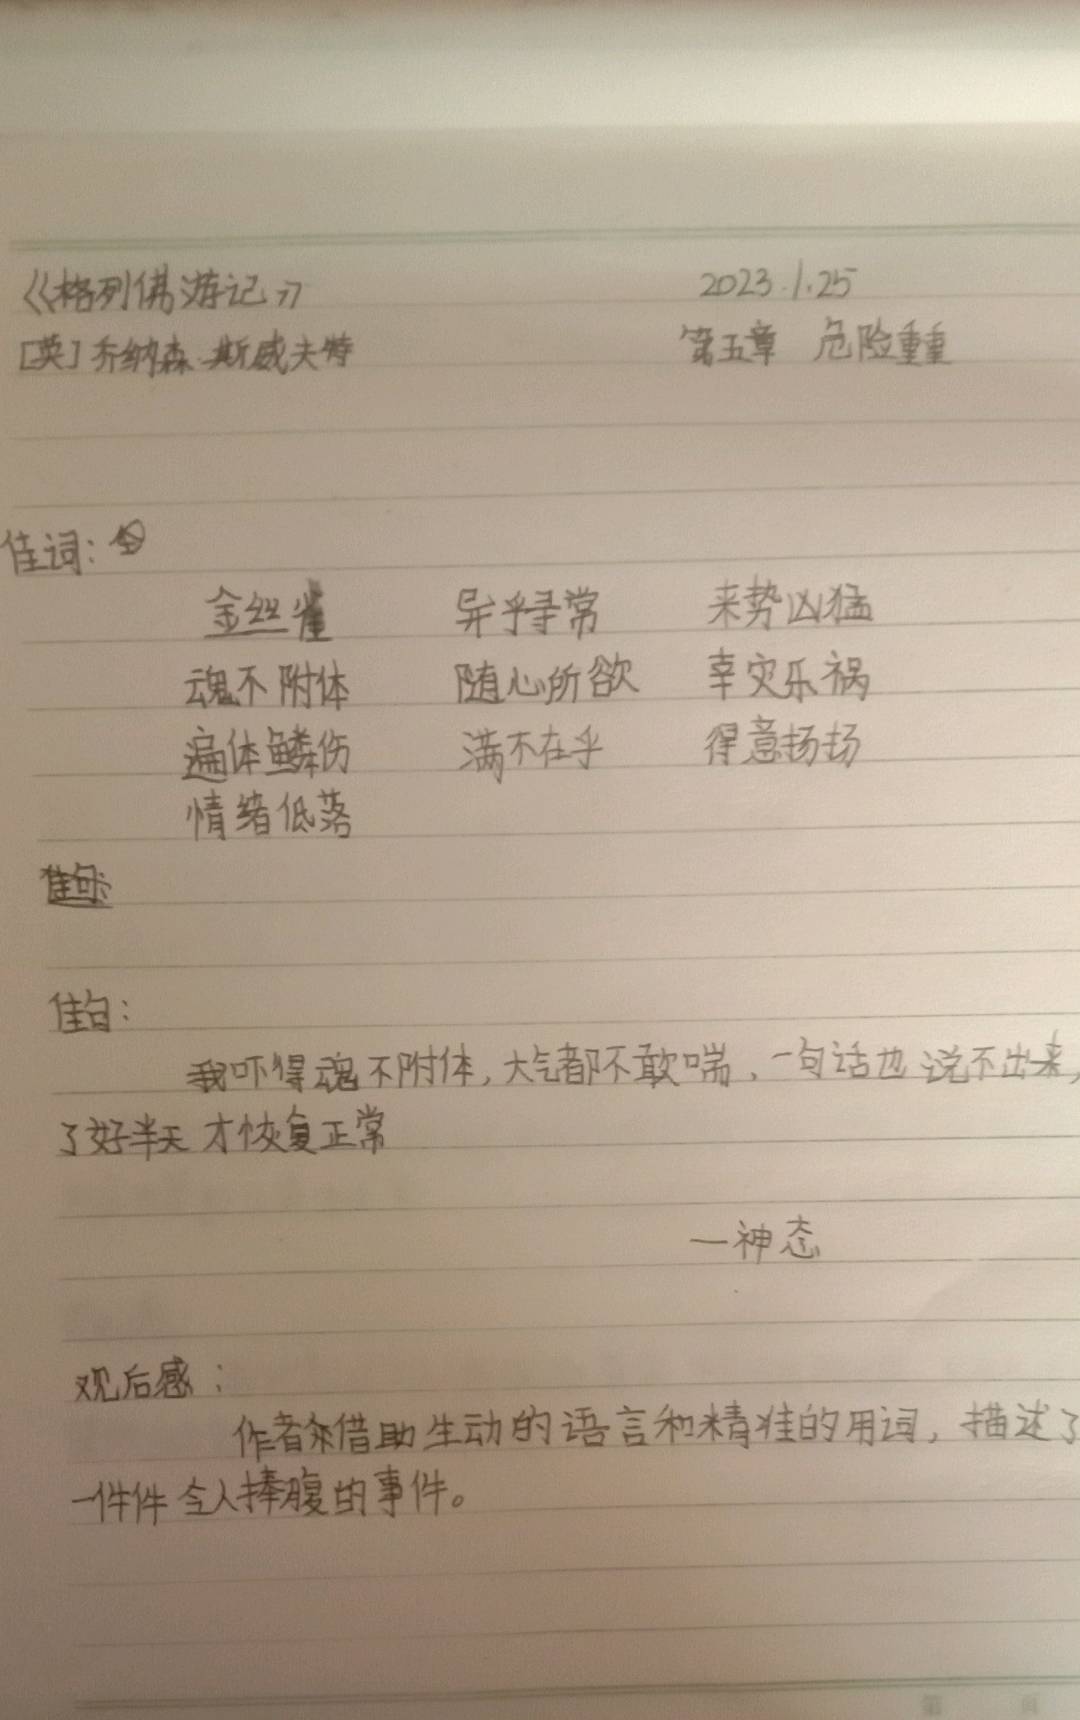 《格列佛游记》 2023.1.25
[英]乔纳森·斯威夫特 第五章 危险重重
佳词：
金丝雀 异乎寻常 来势凶猛
魂不附体 随心所欲 幸灾乐祸
遍体鳞伤 满不在乎 得意扬扬
情绪低落
佳句：
佳句：
我吓得魂不附体，大气都不敢喘、一句话也说不出来，
了好半天才恢复正常
—神态
观后感：
作者借助生动的语言和精准的用词，描述了
一件件令人捧腹的事件。
第 页